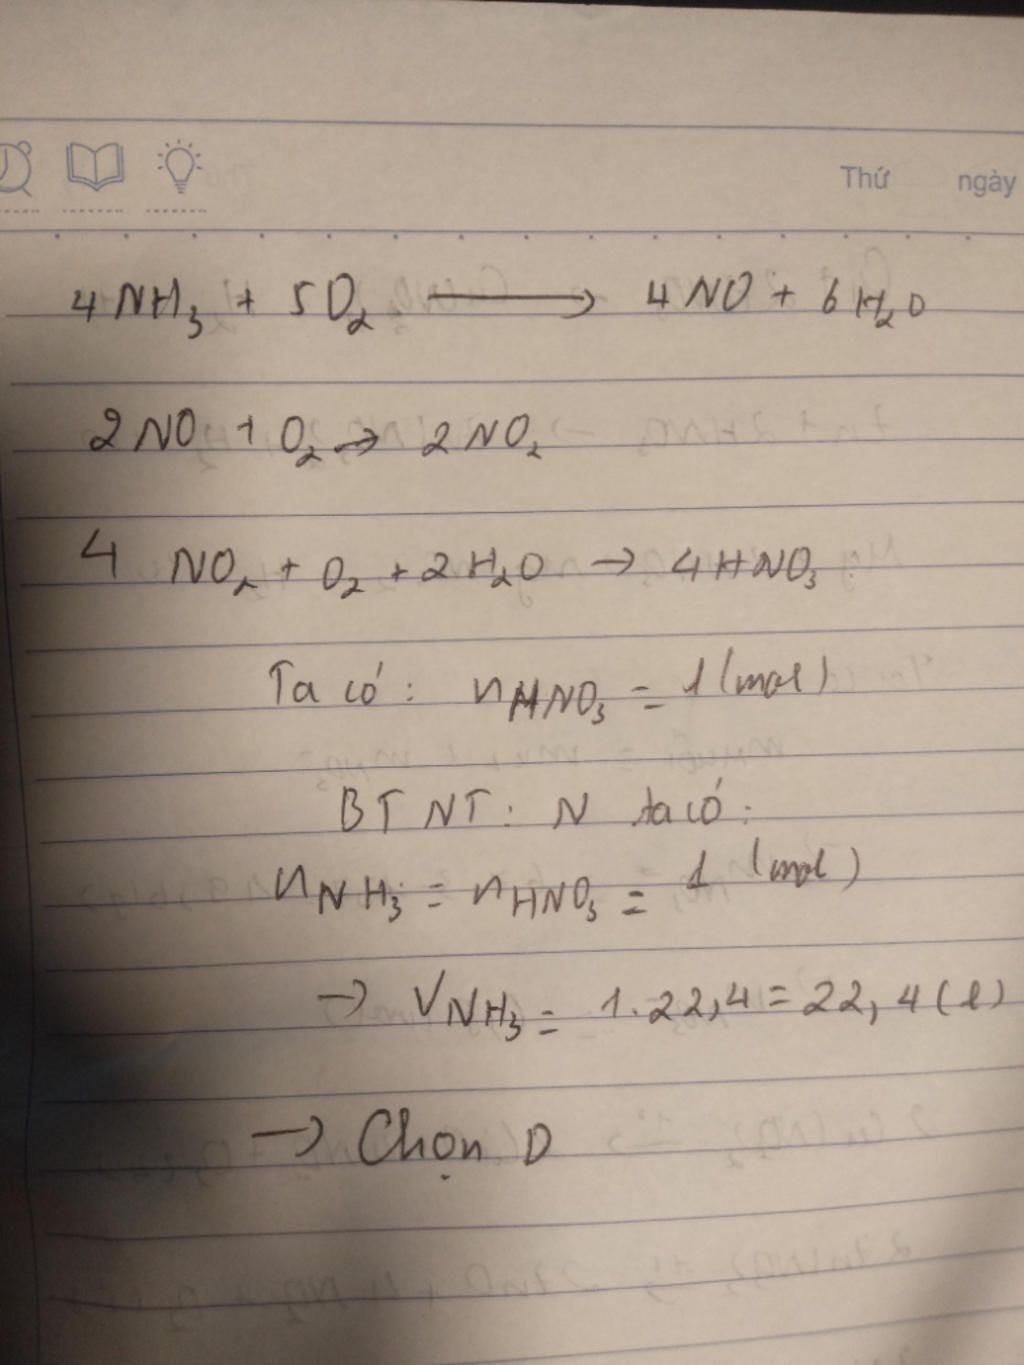 Thứ ngày
4NH₃ + 5O₂ ⟶ 4NO + 6H₂O
2NO + O₂ → 2NO₂
4 NO₂ + O₂ + 2H₂O → 4HNO₃
Ta có: nHNO₃ = 1 (mol)
BTNT: N ta có:
nNH₃ = nHNO₃ = 1 (mol)
→ VNH₃ = 1.22,4 = 22,4 (l)
→ Chọn D